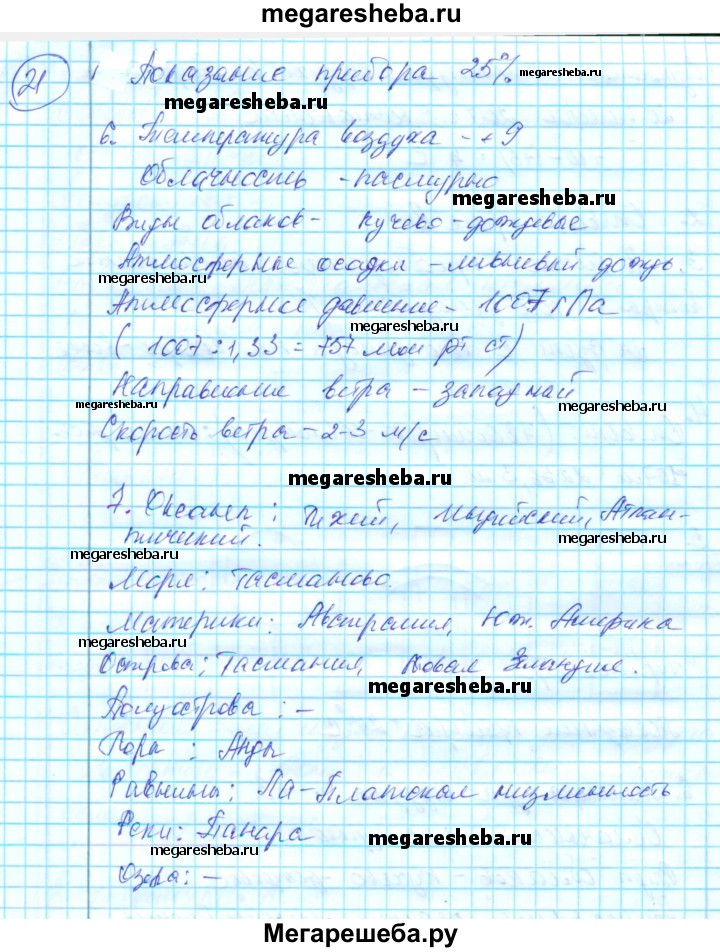 megaresheba.ru
21
Показание прибора 25%
megaresheba.ru
megaresheba.ru
6. Температура воздуха - +9
Облачность - пасмурно
megaresheba.ru
Виды облаков - кучево-дождевые
Атмосферные осадки - ливневый дождь.
megaresheba.ru
Атмосферное давление - 1007 гПа
megaresheba.ru
(1007 : 1,33 = 757 мм рт ст)
Направление ветра - западный
megaresheba.ru
megaresheba.ru
Скорость ветра - 2-3 м/с
megaresheba.ru
7. Океаны: Тихий, Индийский, Атлан-
тический.
megaresheba.ru
megaresheba.ru
Моря: Тасманово.
Материки: Австралия, Юж. Америка
megaresheba.ru
Острова: Тасмания, Новая Зеландия.
megaresheba.ru
Полуострова: -
Горы: Анды
Равнины: Ла-Платская низменность
Реки: Панара
megaresheba.ru
megaresheba.ru
Озера: -
Мегарешеба.ру